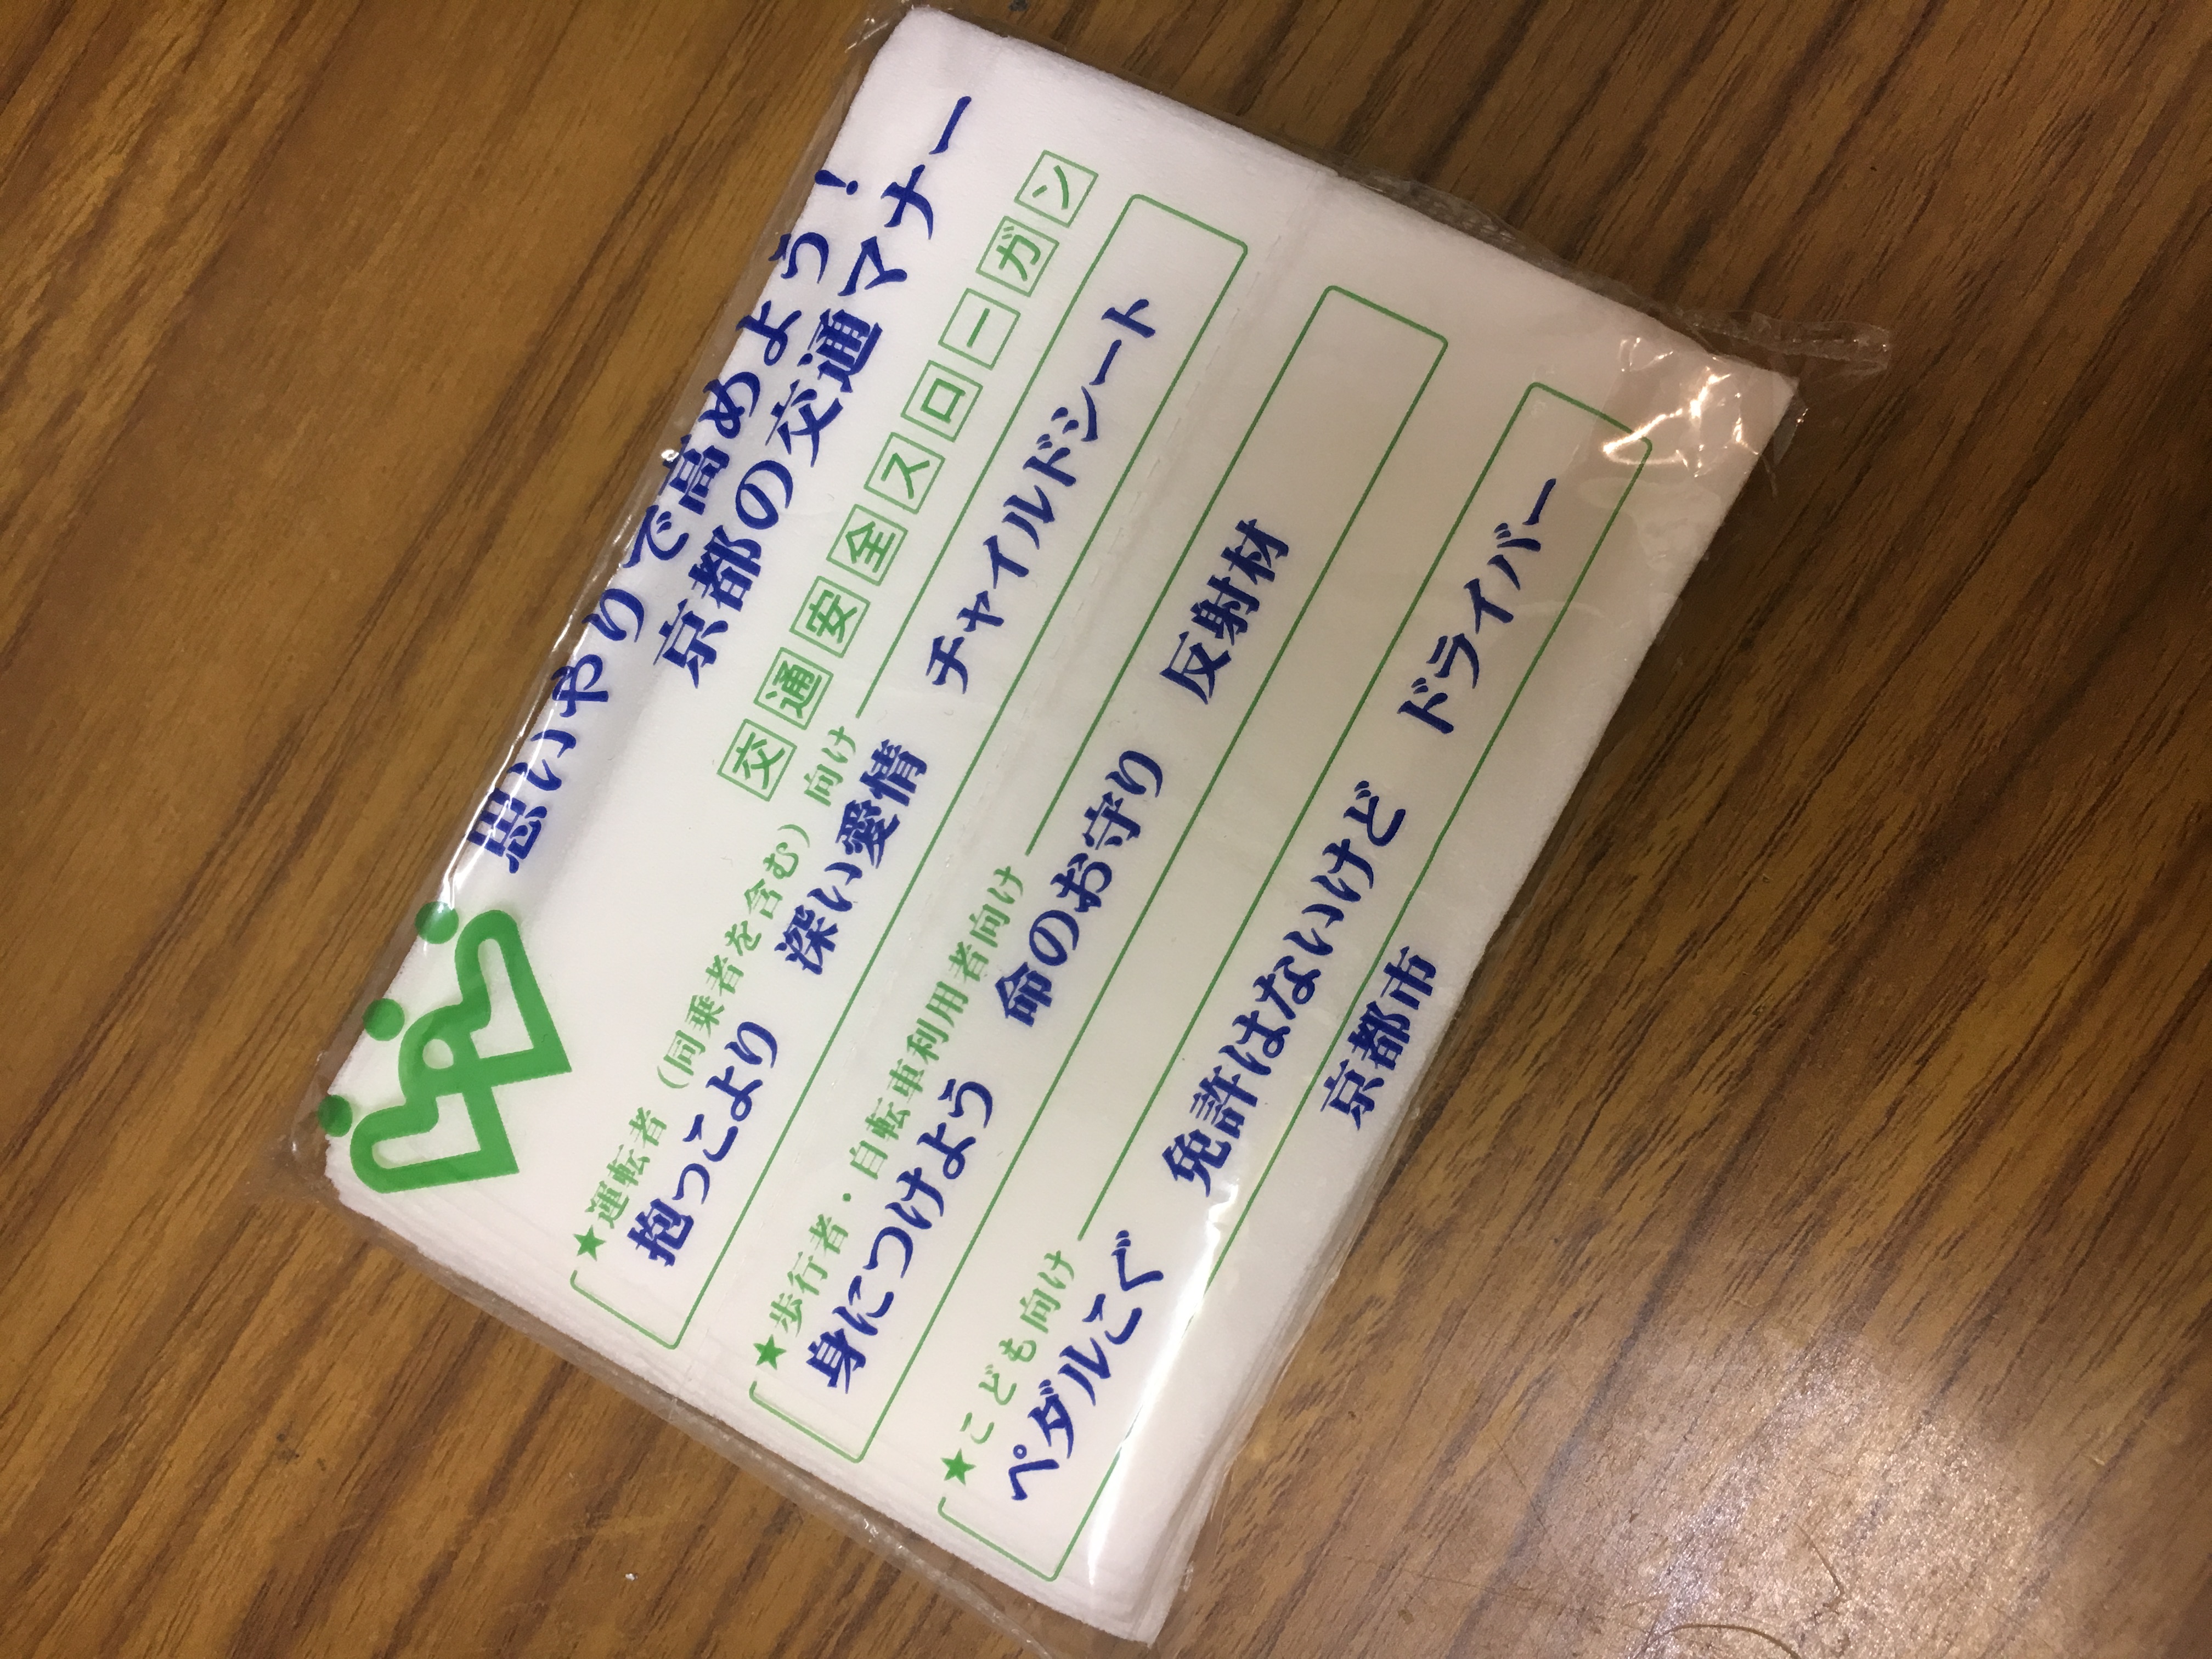 思いやりで高めよう!
京都の交通マナー
交通安全スローガン
★運転者(同乗者を含む)向け
抱っこより 深い愛情 チャイルドシート
★歩行者・自転車利用者向け
身につけよう 命のお守り 反射材
★こども向け
ペダルこぐ 免許はないけど ドライバー
京都市